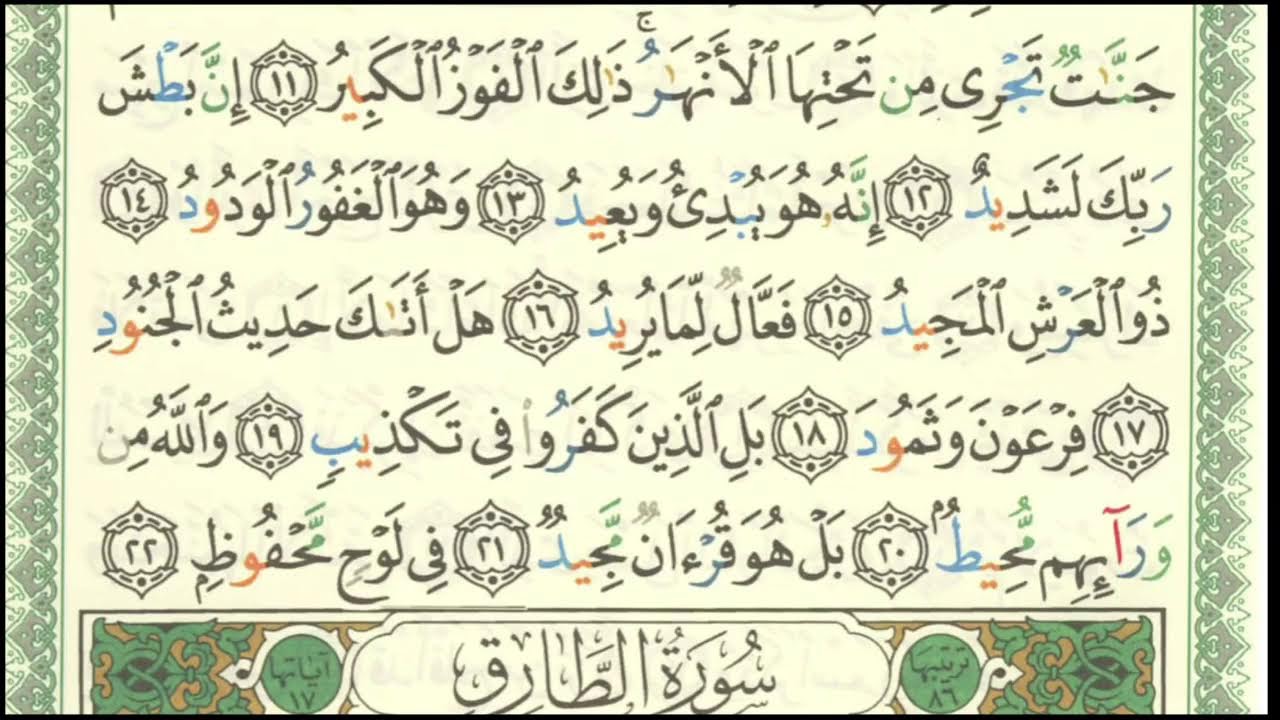 جَنَّـٰتٌ تَجْرِى مِن تَحْتِهَا ٱلْأَنْهَـٰرُ ۚ ذَٰلِكَ ٱلْفَوْزُ ٱلْكَبِيرُ ١١ إِنَّ بَطْشَ
رَبِّكَ لَشَدِيدٌ ١٢ إِنَّهُۥ هُوَ يُبْدِئُ وَيُعِيدُ ١٣ وَهُوَ ٱلْغَفُورُ ٱلْوَدُودُ ١٤
ذُو ٱلْعَرْشِ ٱلْمَجِيدُ ١٥ فَعَّالٌ لِّمَا يُرِيدُ ١٦ هَلْ أَتَىٰكَ حَدِيثُ ٱلْجُنُودِ
١٧ فِرْعَوْنَ وَثَمُودَ ١٨ بَلِ ٱلَّذِينَ كَفَرُوا۟ فِى تَكْذِيبٍ ١٩ وَٱللَّهُ مِن
وَرَآئِهِم مُّحِيطٌۢ ٢٠ بَلْ هُوَ قُرْءَانٌ مَّجِيدٌ ٢١ فِى لَوْحٍ مَّحْفُوظٍۭ ٢٢
ترتيبها ٨٦ سُورَةُ الطَّارِقِ آياتها ١٧